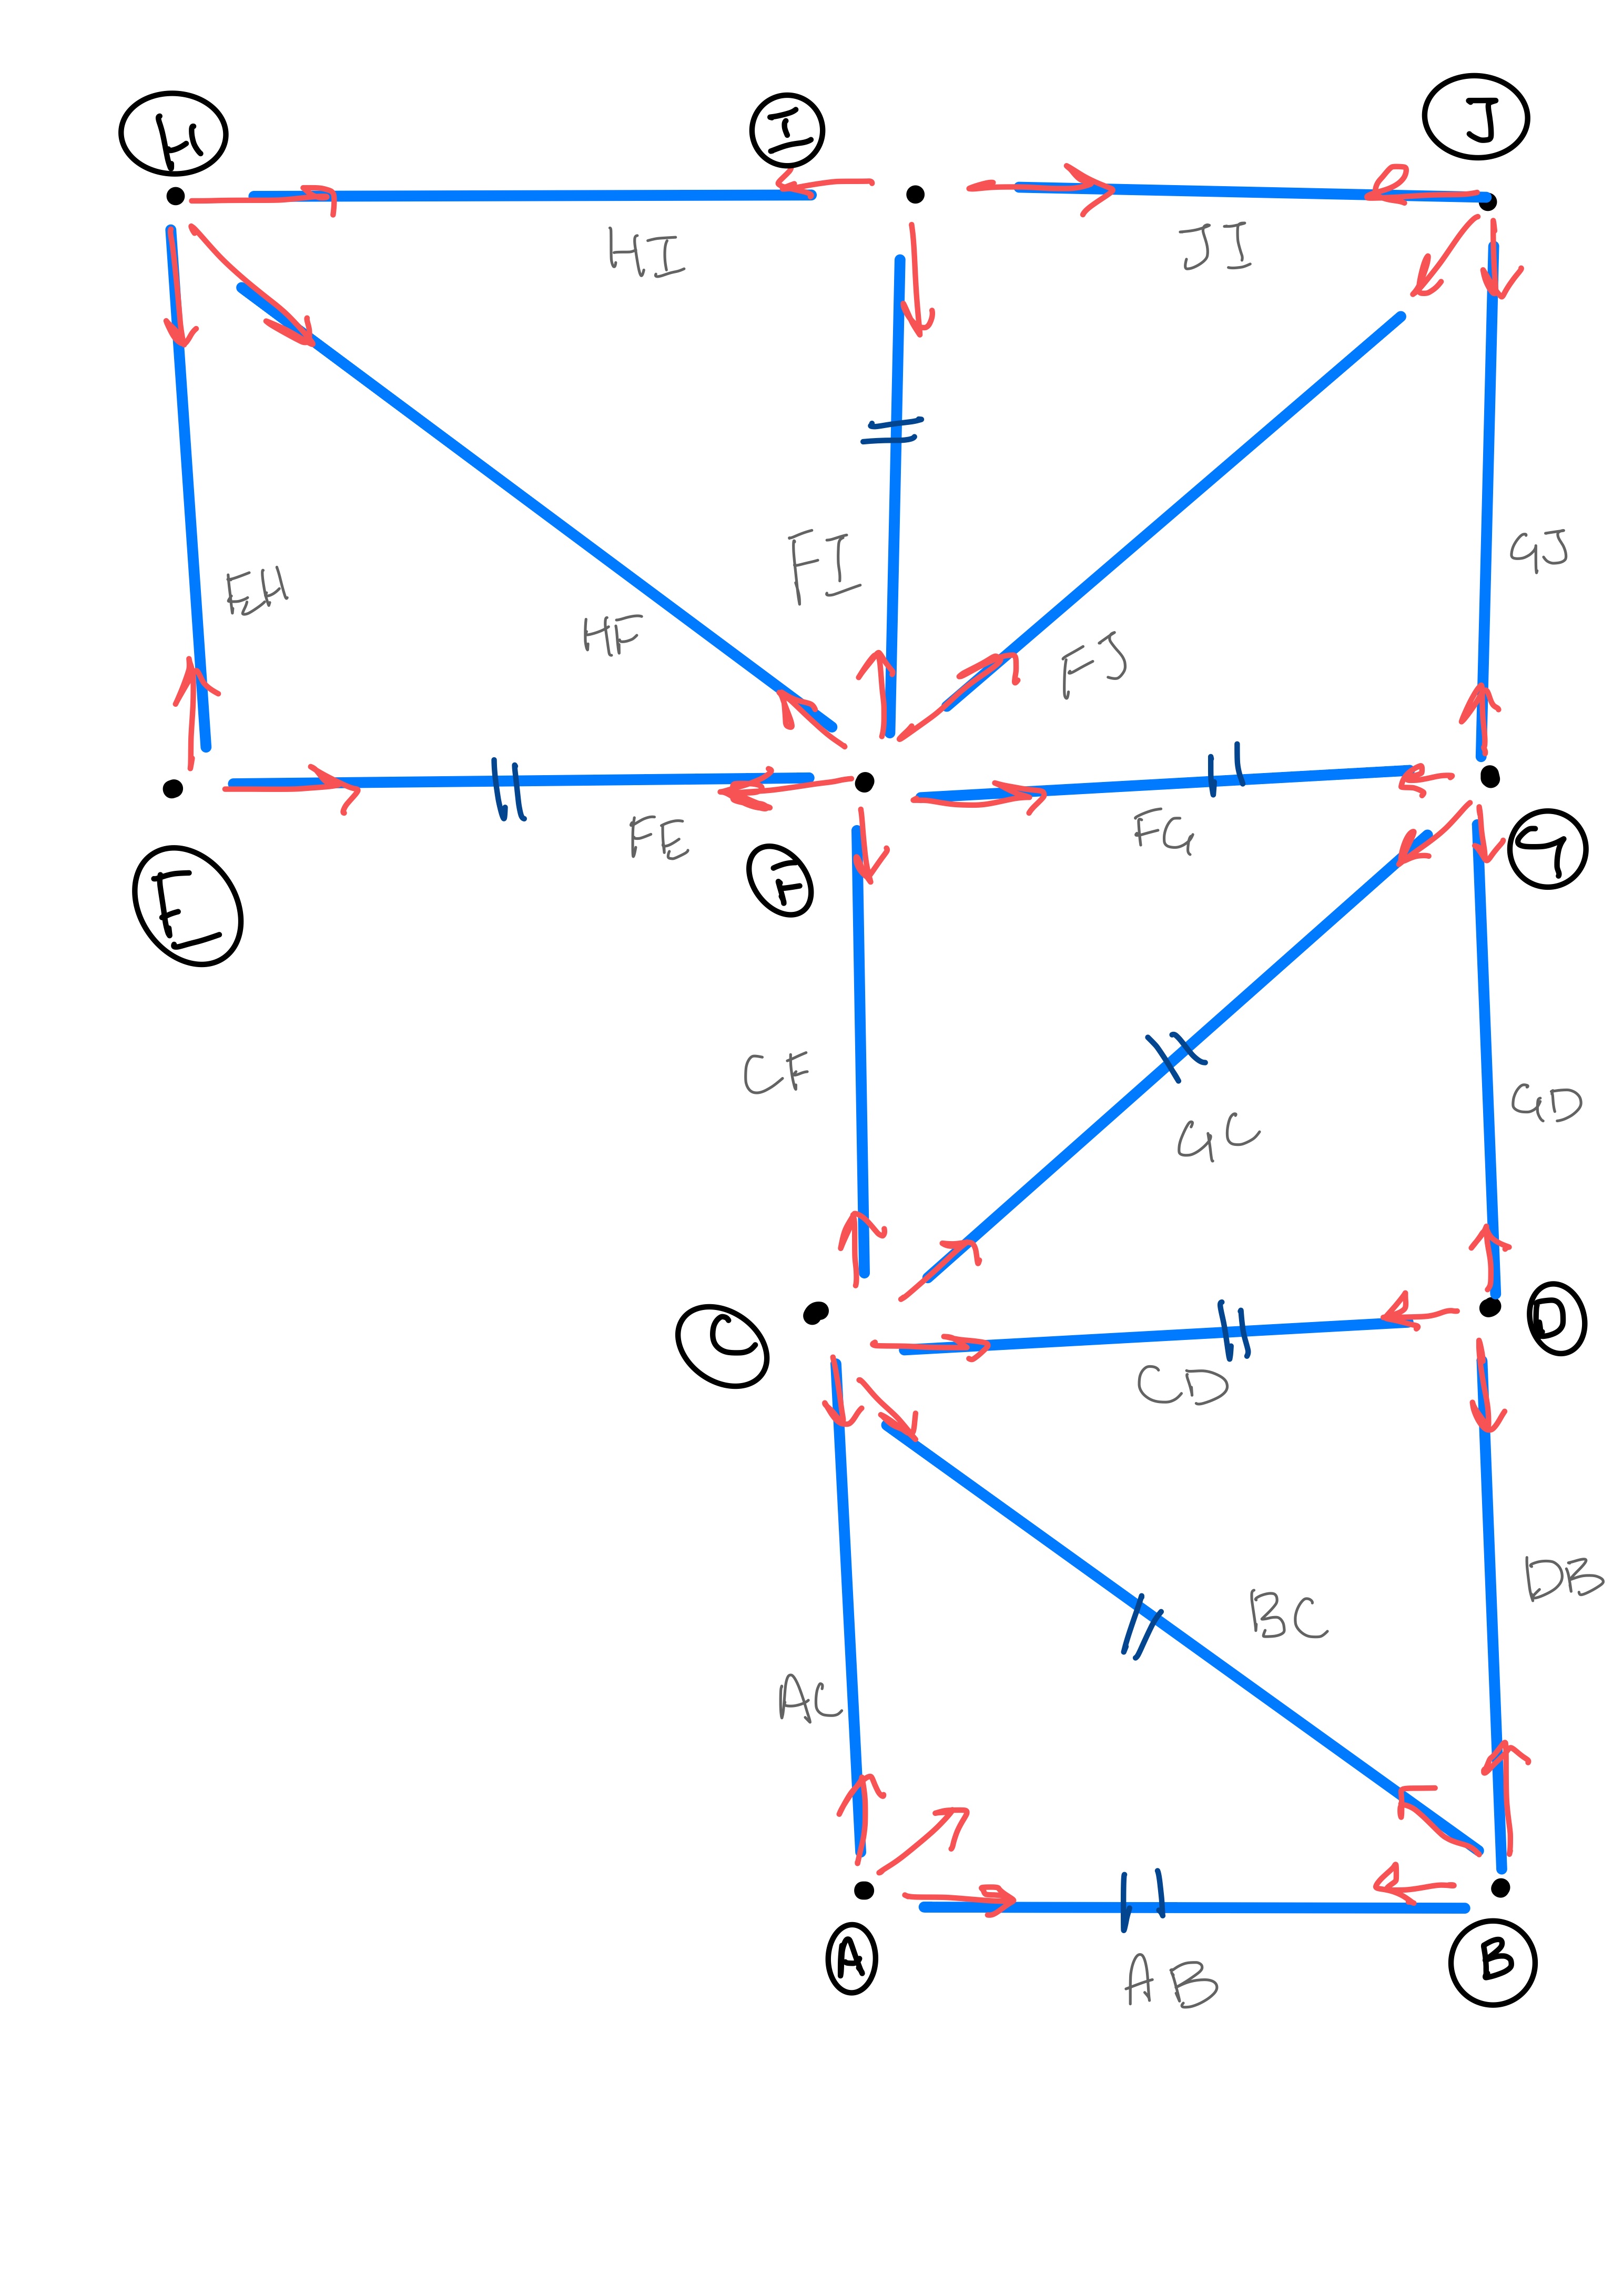 H I J
HI JI
EH HF FI FJ GJ
FE FG
E F G
CF GC GD
C D
CD
AC BC DB
A B
AB